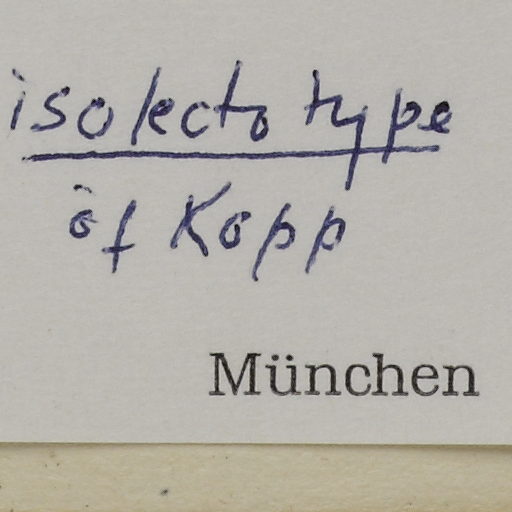 isolectotype
of Kopp
München